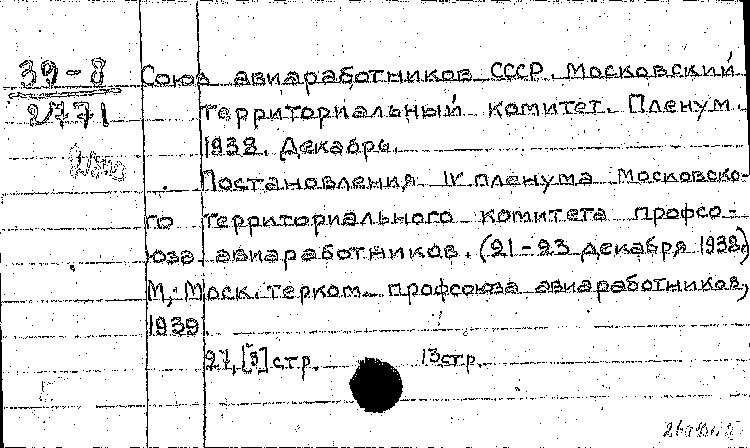 39-8 Союз авиаработников СССР. Московский
2771 территориальный комитет. Пленум.
1938. Декабрь.
Постановления IV пленума Московско-
го территориального комитета профсо-
юза авиаработников. (21-23 декабря 1938)
М., Моск. терком. профсоюза авиаработников,
1939.
27, [3] стр. 13 стр.